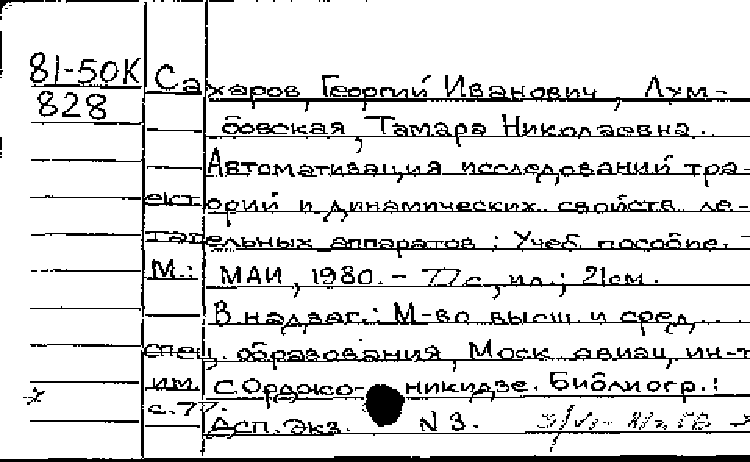 81-50К Сахаров, Георгий Иванович, Лум-
828 бовская, Тамара Николаевна.
Автоматизация исследований тра-
екторий и динамических свойств ле-
тательных аппаратов : Учеб. пособие. -
М.: МАИ, 1980. - 77 с., ил.; 21 см.
В надзаг.: М-во высш. и сред.
спец. образования, Моск. авиац. ин-т
им. С. Орджоникидзе. Библиогр.:
с. 77.
Дсп. Экз. N 3.